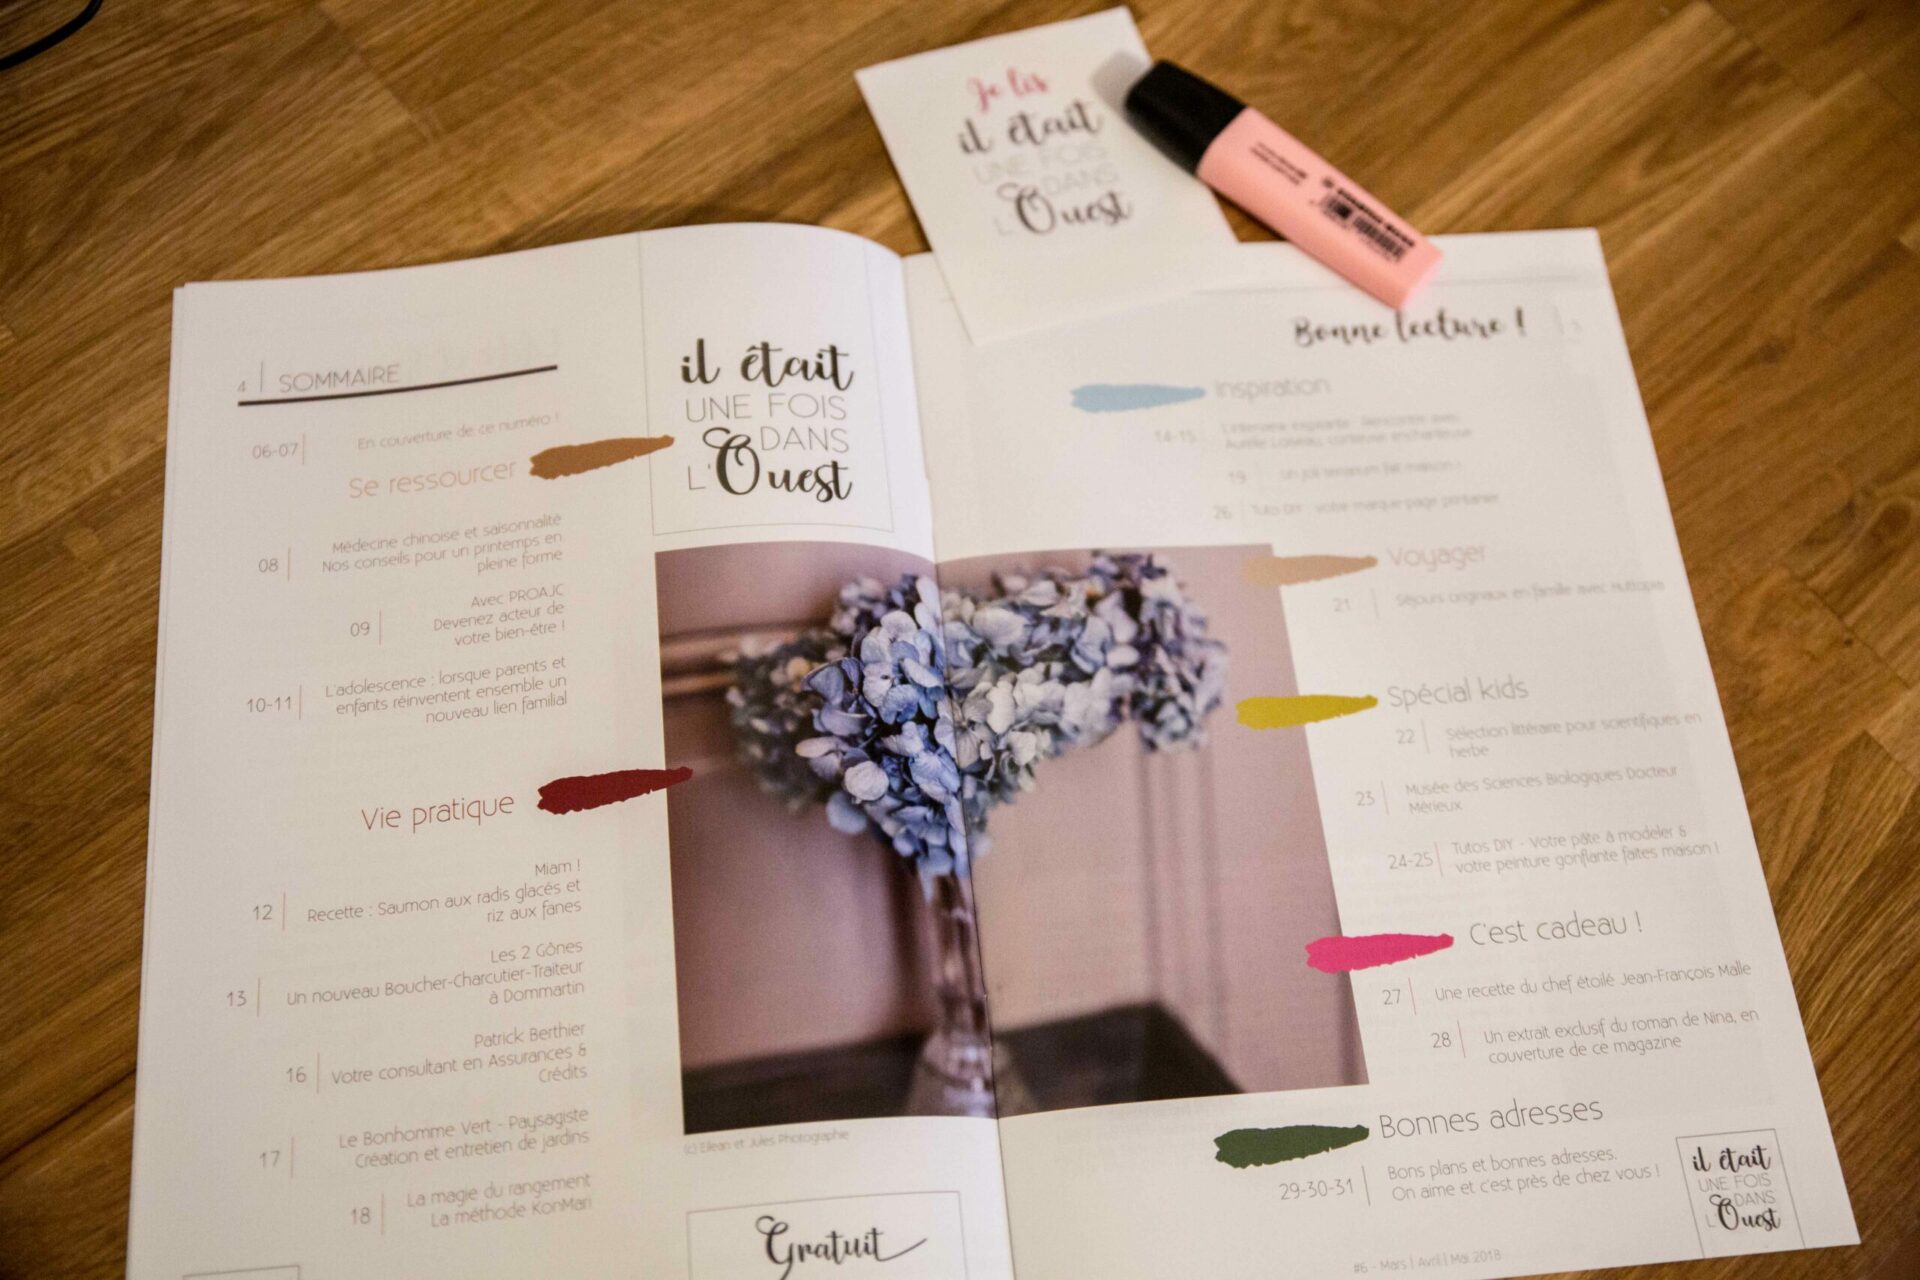 Je lis
il était
UNE FOIS
DANS
L'Ouest
4 | SOMMAIRE
06-07 | En couverture de ce numéro !
Se ressourcer
08 | Médecine chinoise et saisonnalité
Nos conseils pour un printemps en
pleine forme
Avec PROAJC
09 | Devenez acteur de
votre bien-être !
10-11 | L'adolescence : lorsque parents et
enfants réinventent ensemble un
nouveau lien familial
Vie pratique
Miam !
12 | Recette : Saumon aux radis glacés et
riz aux fanes
Les 2 Gônes
13 | Un nouveau Boucher-Charcutier-Traiteur
à Dommartin
Patrick Berthier
16 | Votre consultant en Assurances &
Crédits
17 | Le Bonhomme Vert - Paysagiste
Création et entretien de jardins
18 | La magie du rangement
La méthode KonMari
il était
UNE FOIS
DANS
L'Ouest
(c) Eilean et Jules Photographie
Gratuit
Bonne lecture !
Inspiration
14-15 L'interview inspirante : Rencontre avec
Aurélie Loiseau, conteuse enchanteuse
19 | Un joli terrarium fait maison !
26 | Tuto DIY : votre marque-page printanier
Voyager
21 | Séjours originaux en famille avec Huttopia
Spécial kids
22 | Sélection littéraire pour scientifiques en
herbe
23 | Musée des Sciences Biologiques Docteur
Mérieux
24-25 | Tutos DIY - Votre pâte à modeler &
votre peinture gonflante faites maison !
C'est cadeau !
27 | Une recette du chef étoilé Jean-François Malle
28 | Un extrait exclusif du roman de Nina, en
couverture de ce magazine
Bonnes adresses
29-30-31 | Bons plans et bonnes adresses.
On aime et c'est près de chez vous !
il était
UNE FOIS
DANS
L'Ouest
#6 - Mars | Avril | Mai 2018